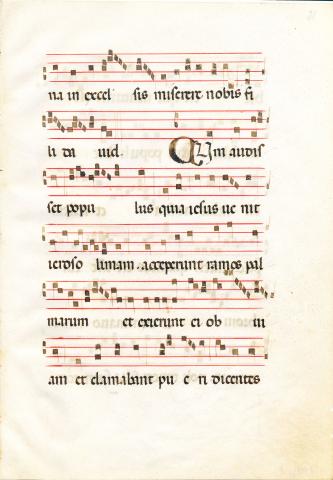 na in excel sis miserere nobis fi
li da uid. Cum audis
set popu lus quia iesus ue nit
ieroso limam. acceperunt ramos pal
marum et exierunt ei ob ui
am et clamabant pu e ri dicentes